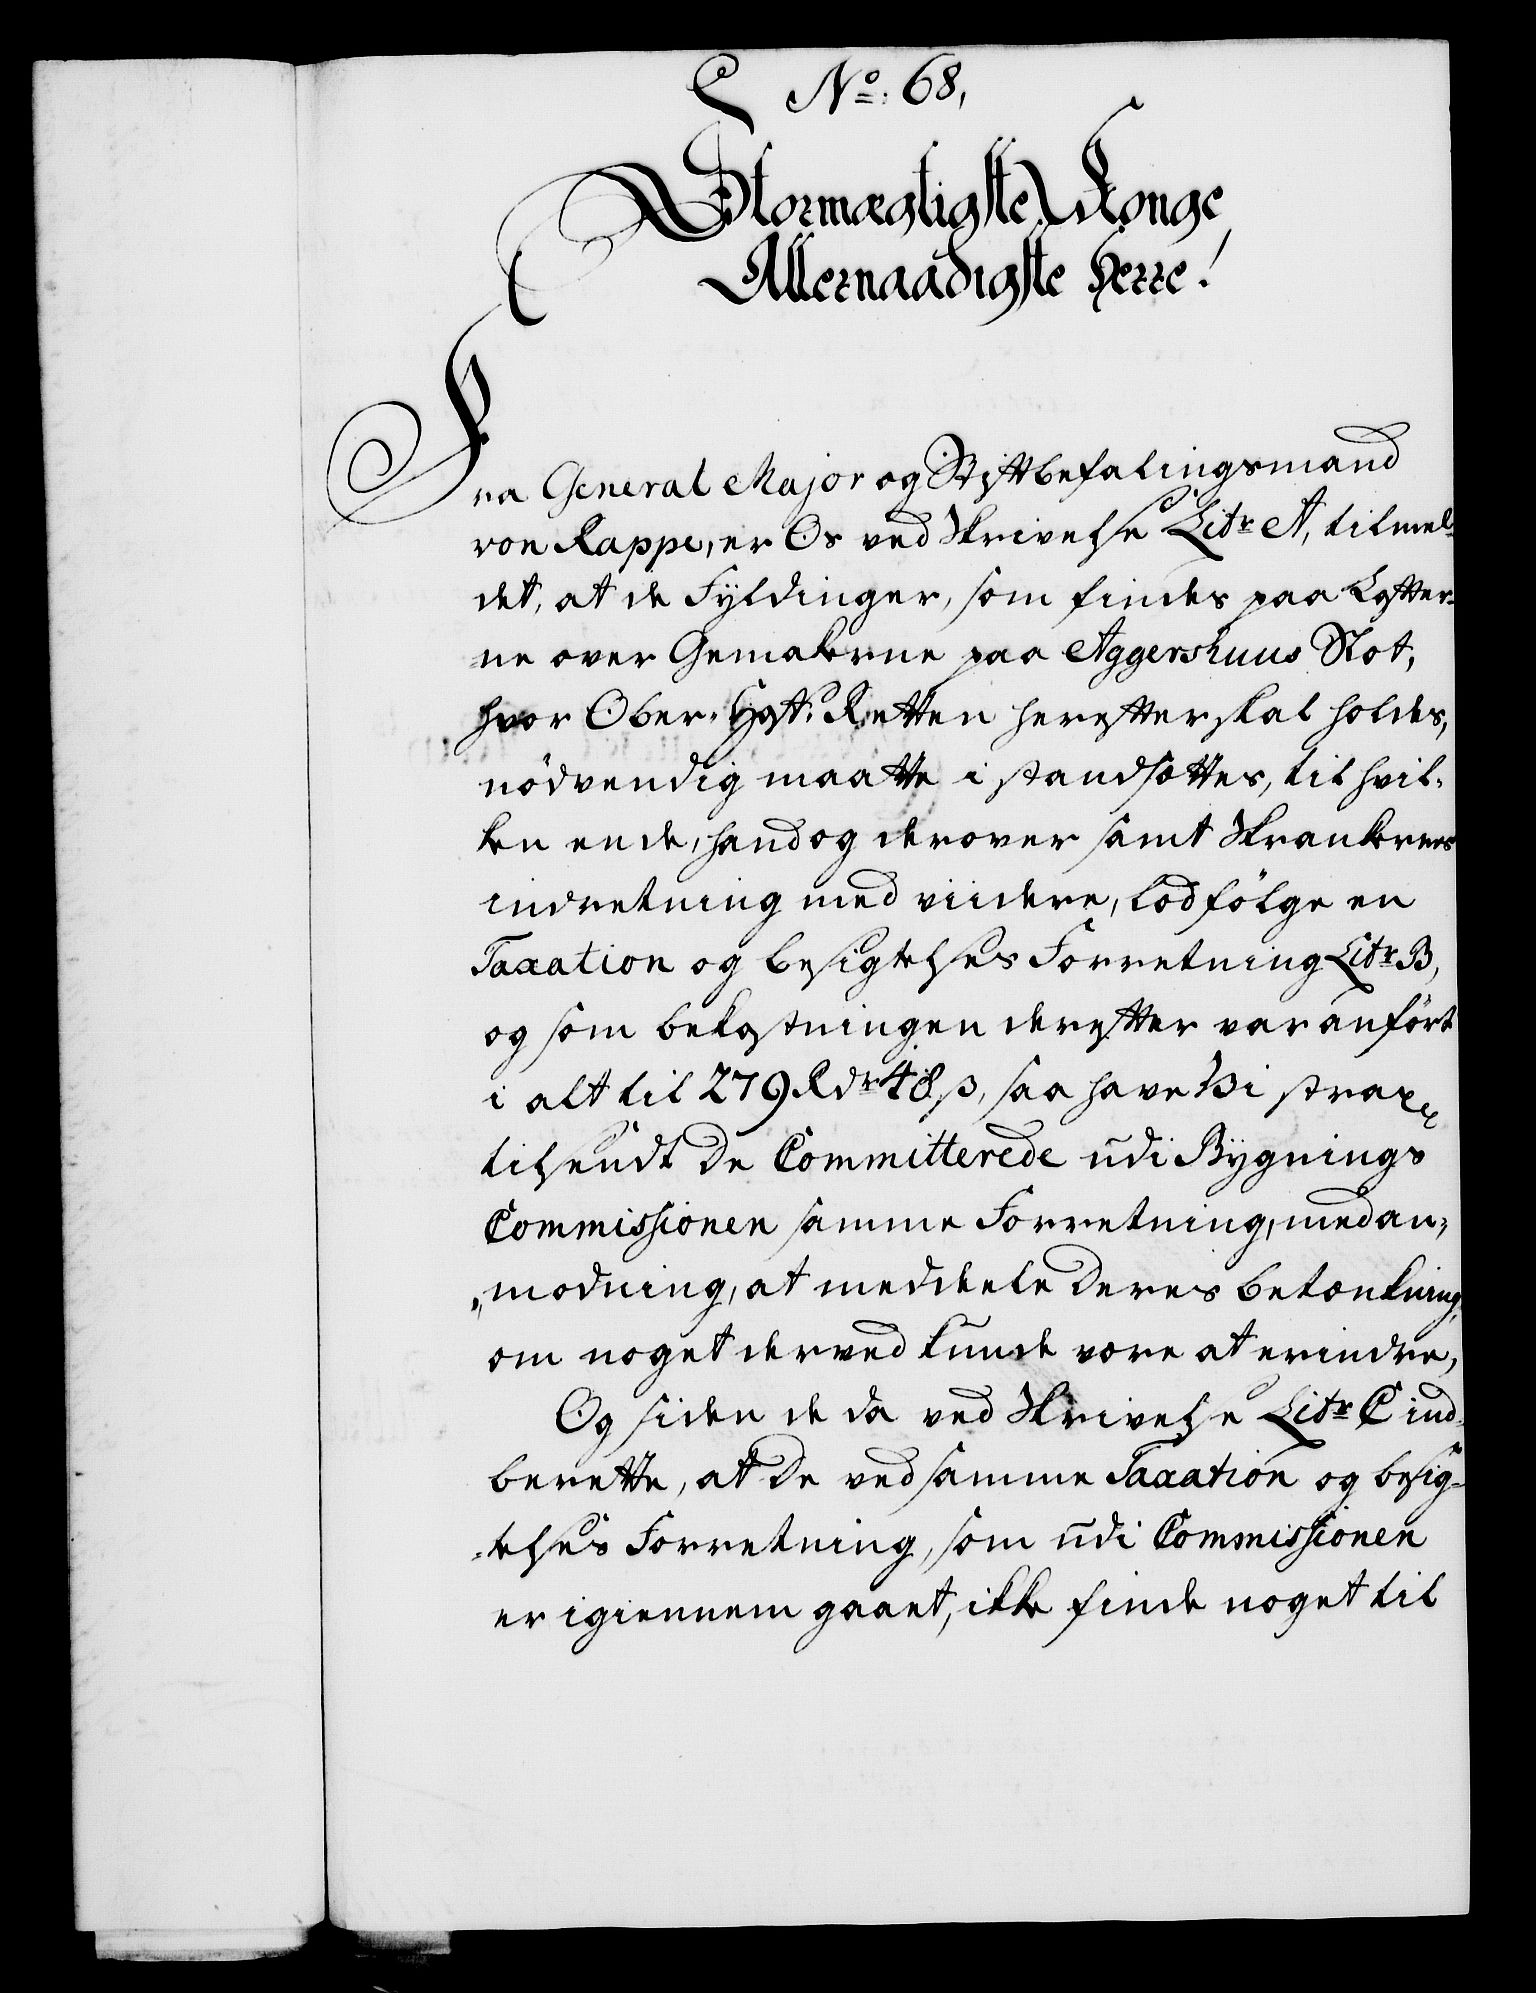 No: 68,
Stormægtigste Konge
Allernaadigste Herre!
Fra General Major og Stiftbefalingsmand
von Rappe, er Os ved Skrivelse Litr A, tilmel-
det, at de Fyldinger, som findes paa Lofter-
ne over Gemakerne paa Aggershuus Slot,
hvor Ober-Hof-Retten herefter skal holdes,
nödvendig maatte i standsættes, til hvil-
ken ende, hand og derover samt Skrankernes
indretning med viidere, lod følge en
Taxation og besigtelses Forretning Litr B,
og som bekostningen derefter var anført
i alt til 279 Rdr 48 ß, saa have Vi strax
tilsendt De Committerede udi Bygnings
Commissionen samme Forretning, med an-
-modning, at meddeele Deres betænkning,
om noget derved kunde være at erindre,
Og siden de da ved Skrivelse Litr C ind-
berette, at De ved samme Taxation og besig-
-telses Forretning, som udi Commissionen
er igiennem gaaet, ikke finde noget til